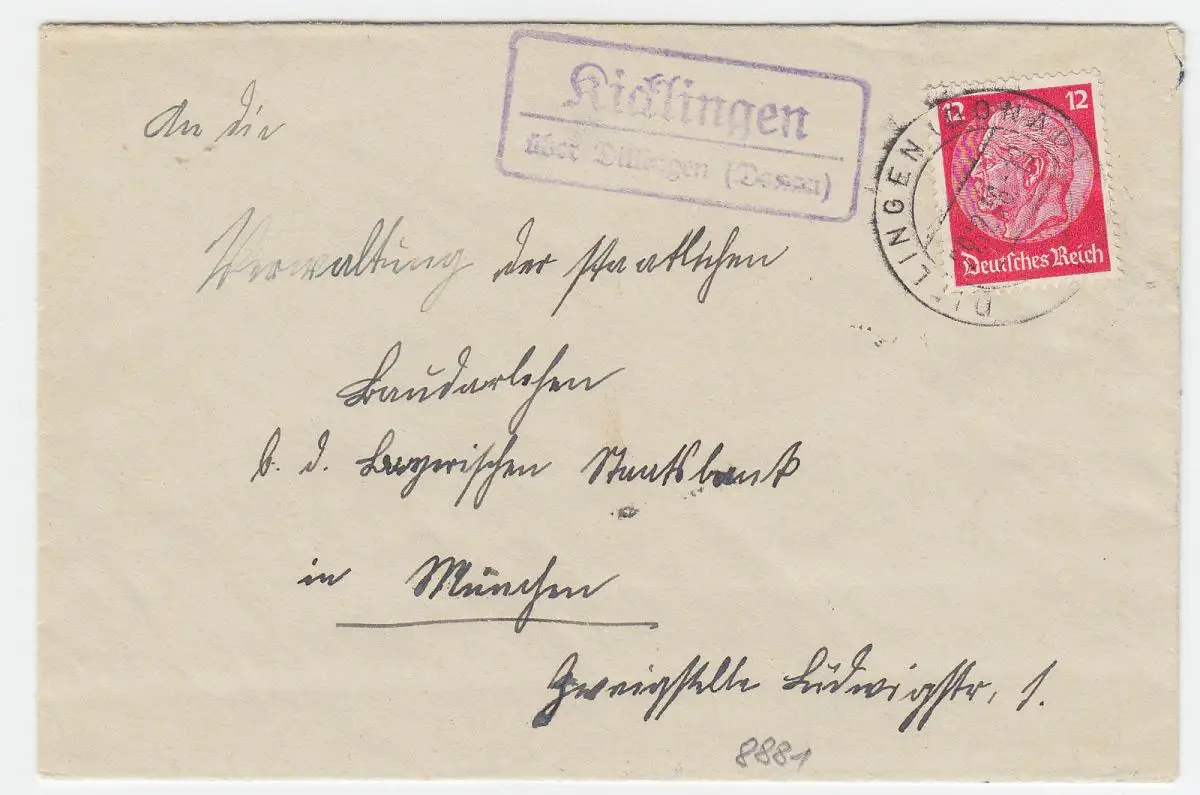 Kicklingen
über Dillingen (Donau)
12 12
DILLINGEN (DONAU)
Deutsches Reich
An die
Verwaltung der staatlichen
Baudarlehen
b. d. Bayerischen Staatsbank
in München
Zweigstelle Ludwigstr. 1.
8881